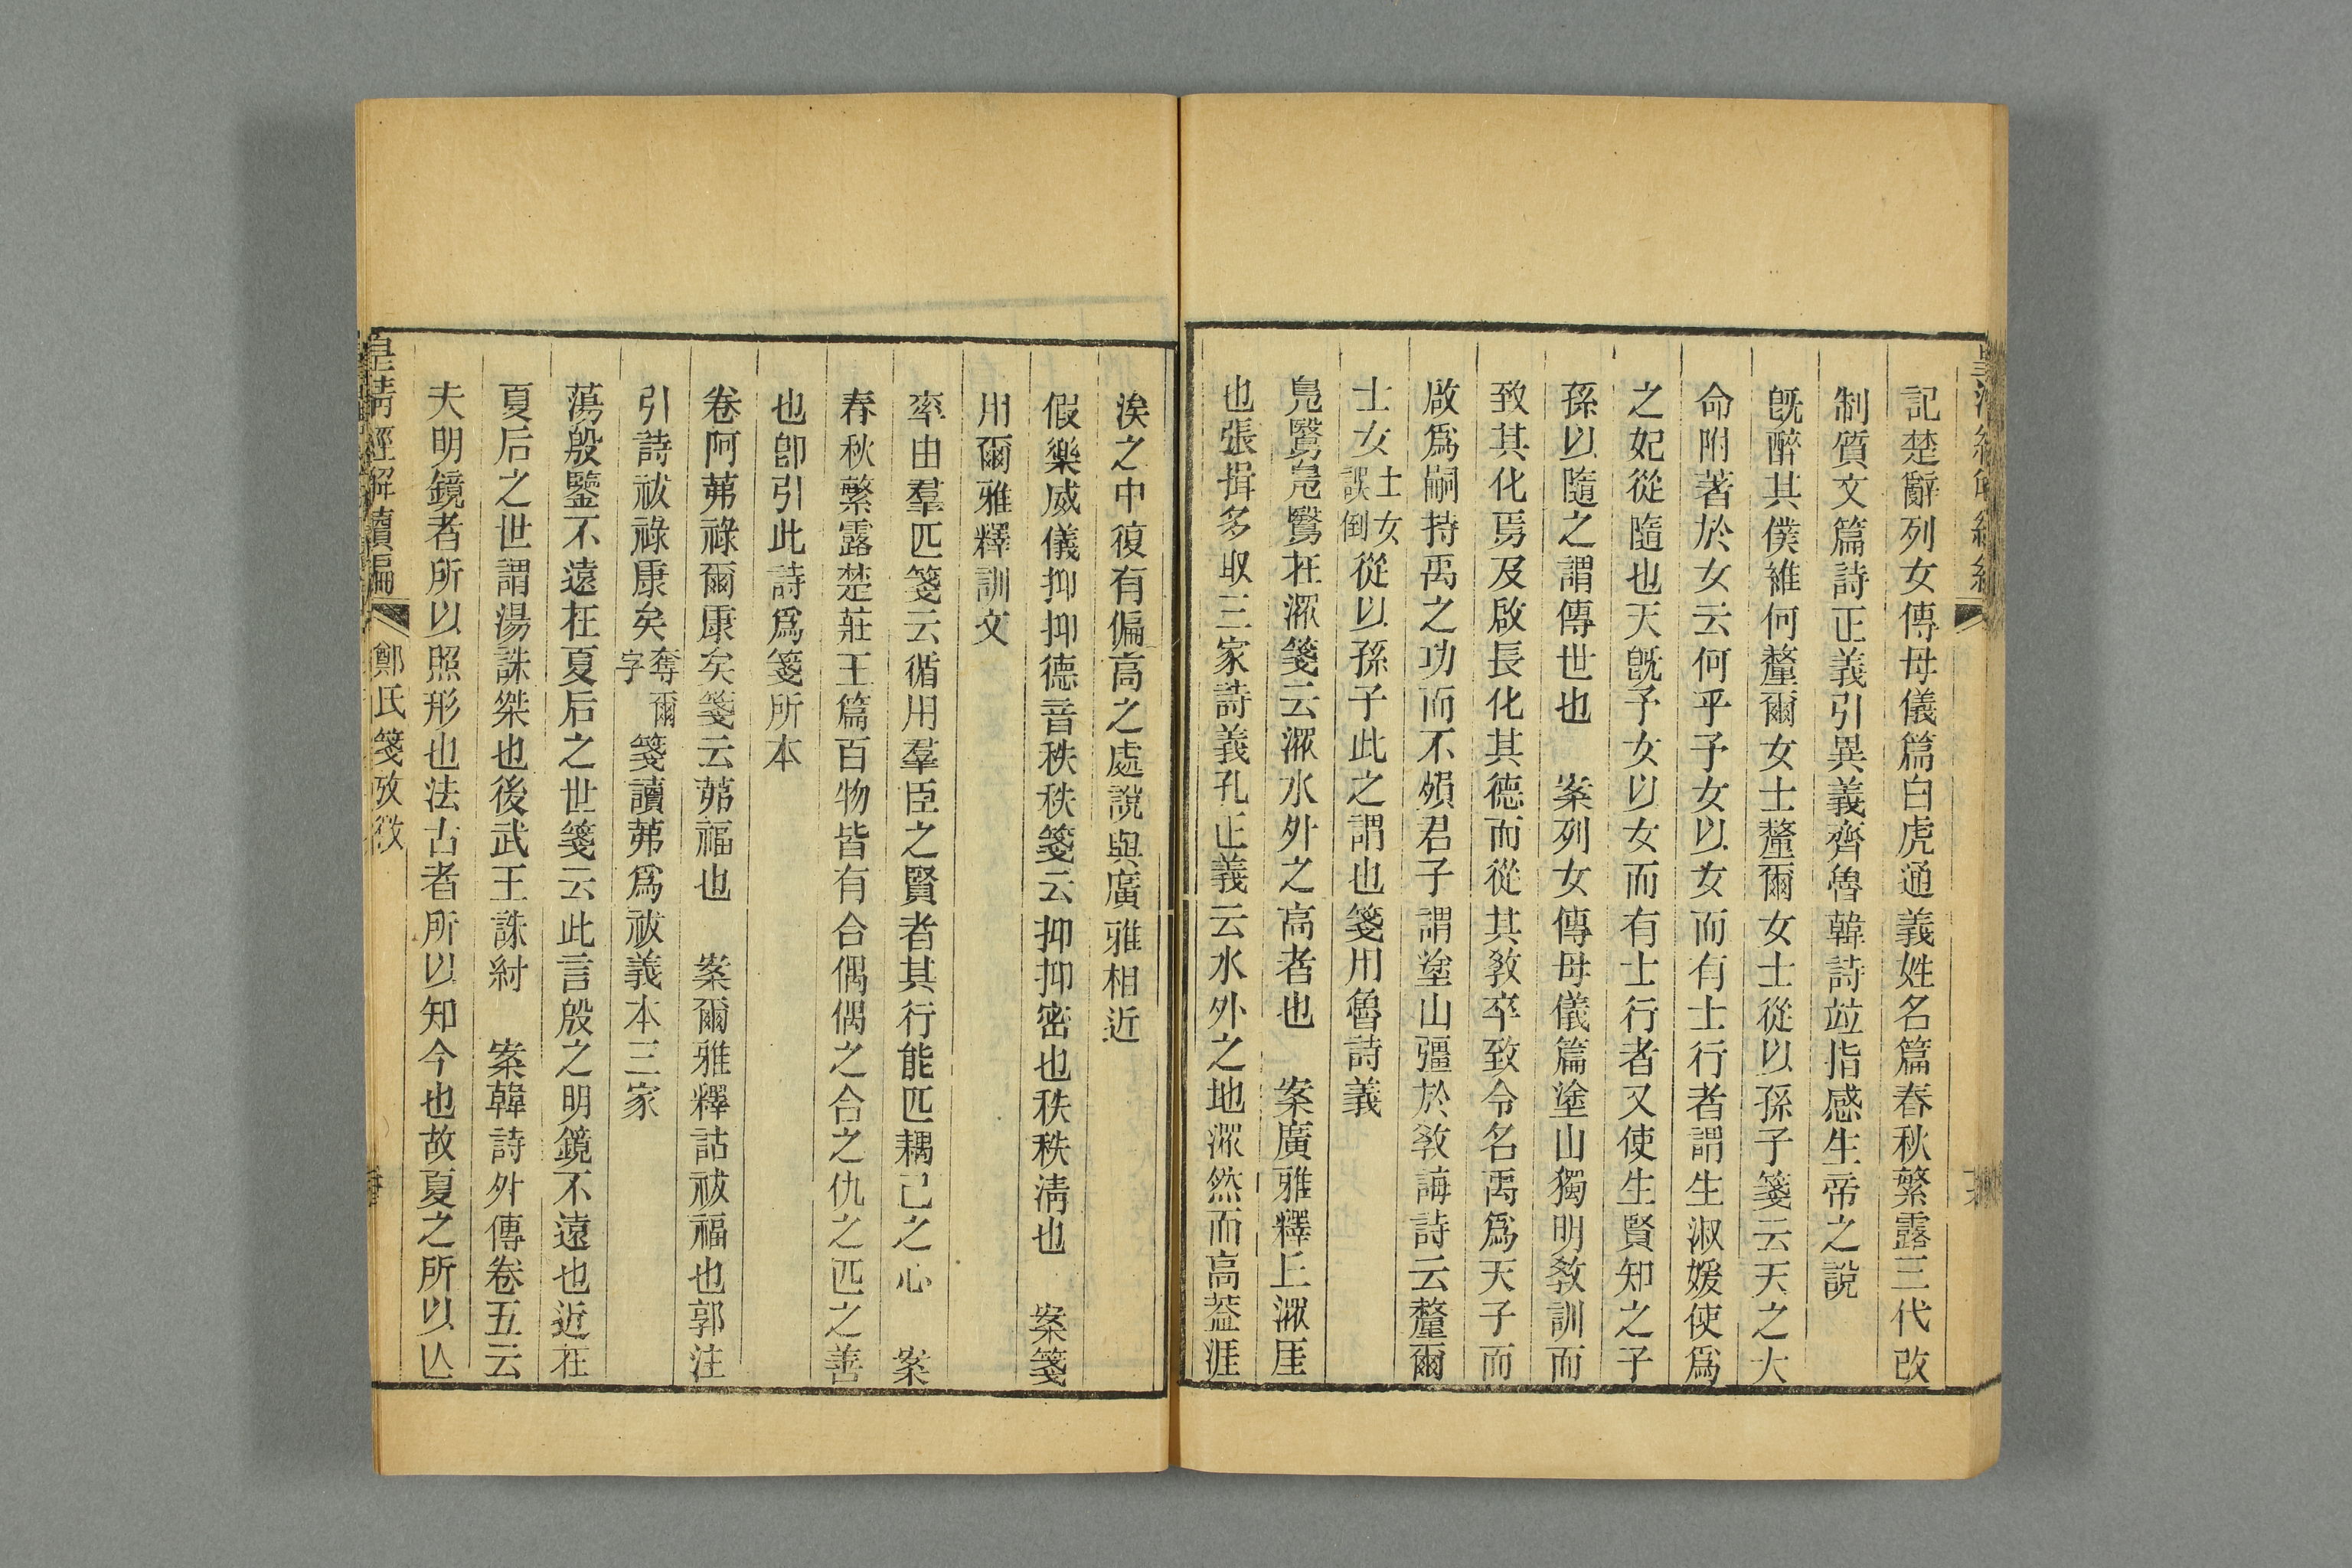 記楚辭列女傳母儀篇白虎通義姓名篇春秋繁露三代改
制質文篇詩正義引異義齊魯韓詩竝指感生帝之說
旣醉其僕維何釐爾女士釐爾女士從以孫子箋云天之大
命附著於女云何乎予女以女而有士行者謂生淑媛使爲
之妃從隨也天旣予女以女而有士行者又使生賢知之子
孫以隨之謂傳世也　案列女傳母儀篇塗山獨明敎訓而
致其化焉及啟長化其德而從其敎卒致令名禹爲天子而
啟爲嗣持禹之功而不殞君子謂塗山彊於敎誨詩云釐爾
士女士女誤倒從以孫子此之謂也箋用魯詩義
鳧鷖鳧鷖在潀箋云潀水外之高者也　案廣雅釋丘潀厓
也張揖多取三家詩義孔正義云水外之地潀然而高葢涯
涘之中復有偏高之處說與廣雅相近
假樂威儀抑抑德音秩秩箋云抑抑密也秩秩淸也　案箋
用爾雅釋訓文
率由羣匹箋云循用羣臣之賢者其行能匹耦己之心　案
春秋繁露楚莊王篇百物皆有合偶偶之合之仇之匹之善
也卽引此詩爲箋所本
卷阿茀祿爾康矣箋云茀福也　案爾雅釋詁祓福也郭注
引詩祓祿康矣奪爾字箋讀茀爲祓義本三家
蕩殷鑒不遠在夏后之世箋云此言殷之明鏡不遠也近在
夏后之世謂湯誅桀也後武王誅紂　案韓詩外傳卷五云
夫明鏡者所以照形也法古者所以知今也故夏之所以亾
皇淸經解續編
鄭氏箋攷徵